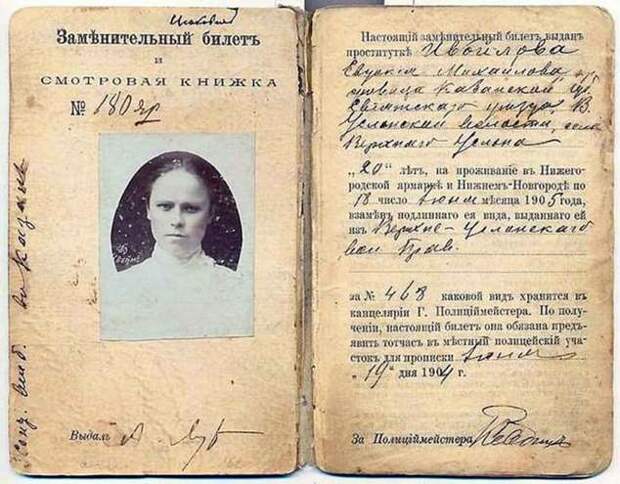 Замѣнительный билетъ
и
СМОТРОВАЯ КНИЖКА
№ 180 яр
Выдалъ
Настоящій замѣнительный билетъ выданъ
проституткѣ
Михайлова
Казанской
уѣзда, В.
Услонской волости, села
Верхняго Услона
„20“ лѣтъ, на проживаніе въ Нижего-
родской армаркѣ и Нижнемъ-Новгородѣ по
18 число іюня мѣсяца 1905 года,
взамѣнъ подлиннаго ея вида, выданнаго ей
изъ Верхне-Услонскаго
вол Прав.
за № 468 каковой видъ хранится въ
канцеляріи Г. Полиціймейстера. По полу-
ченіи, настоящій билетъ она обязана предъ-
явить тотчасъ въ мѣстный полицейскій уча-
стокъ для прописки іюня
„19“ дня 1904 г.
За Полиціймейстера